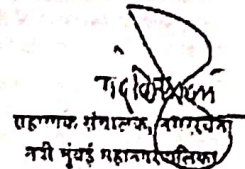 सहाय्यक संचालक, नगररचना
नवी मुंबई महानगरपालिका